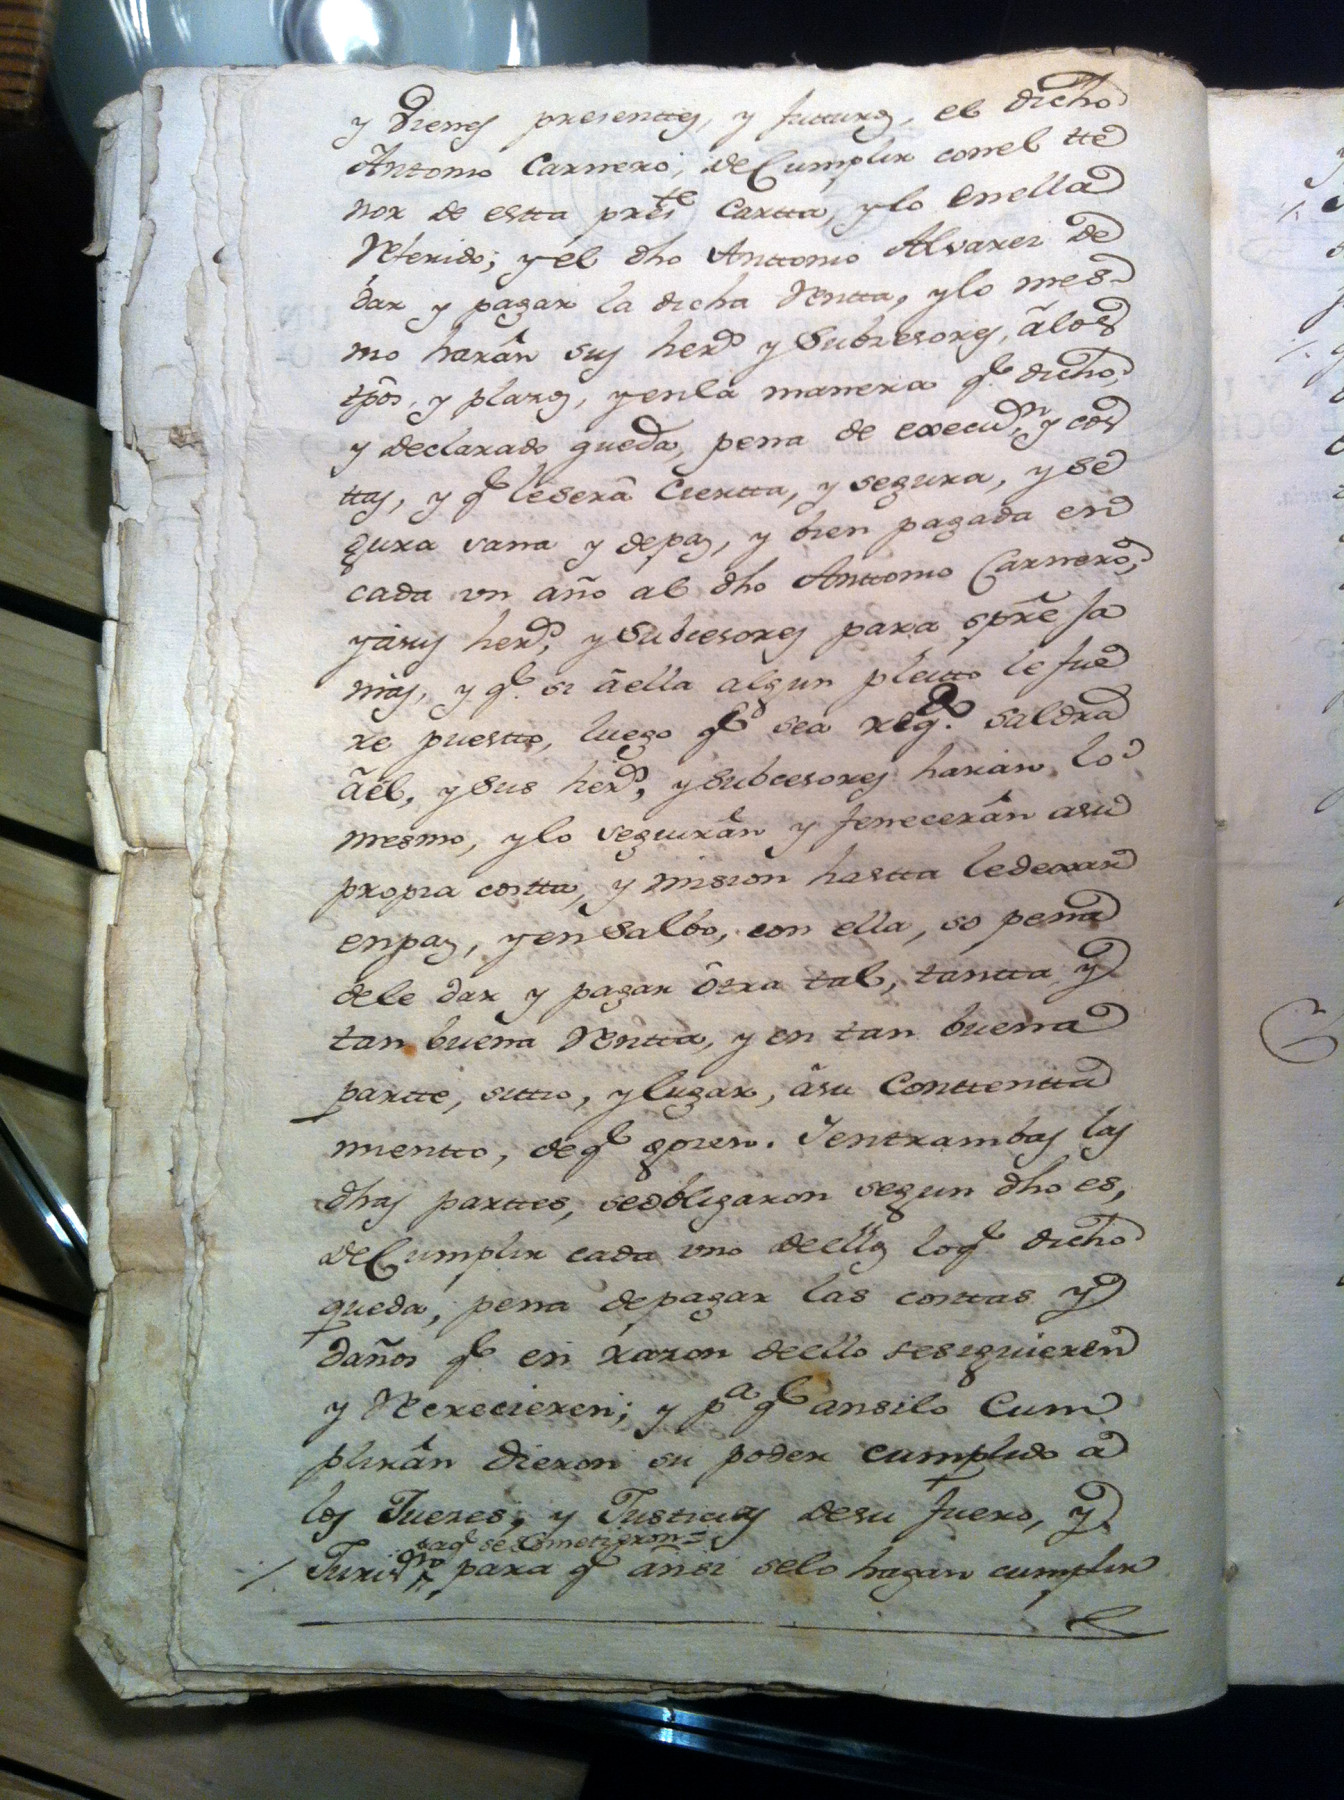 y Vienes presenttes, y futturos, el dicho
Antonio Carnero; de Cumplir con el tte
nor de estta pres.te Cartta, y lo en ella
Referido; y el dho Anttonio Alvarez de
dar y pagar la dicha Rentta, y lo mes-
mo harân sus herd.s y Subcesores, âlos
tpôs, y plazos, y en la manera q.e dicho,
y declarado queda, pena de execuz.n y cos
ttas, y q.e leserâ Ciertta, y segura, y se
gura sana y depaz, y bien pagada en
cada un año al dho Anttonio Carnero,
y âsus herd.s y Subcesores para spre Ja
mas, y q.e si âella algun pleitto le fue
re puestto, luego q.e sea reg.do saldra
âel, y Sus herd.s y subcesores harân lo
mesmo, y lo seguirân y fenecerân asu
propia costta, y mision hastta ledexar
enpaz, y en Salbo, con ella, so pena
dele dar y pagar ôtra tal, tantta y
tan buena Rentta, y en tan buena
partte, sittio, y lugar, âsu Conttentta
mientto, deq.e
Y entrambas las
dhas parttes, seobligaron segun dho es,
de Cumplir cada uno deellos loq.e dicho
queda, pena depagar las costtas y
daños q.e en razon deello sesiguieren
y Recrecieren; y p.a q.e ansilo Cum
plirân dieron su poder cumplido a
los Juezes, y Justicias desu fuero, y
aq.e se sometieron=
Jurisd.on para q.e ânsi selo hagan cumplir